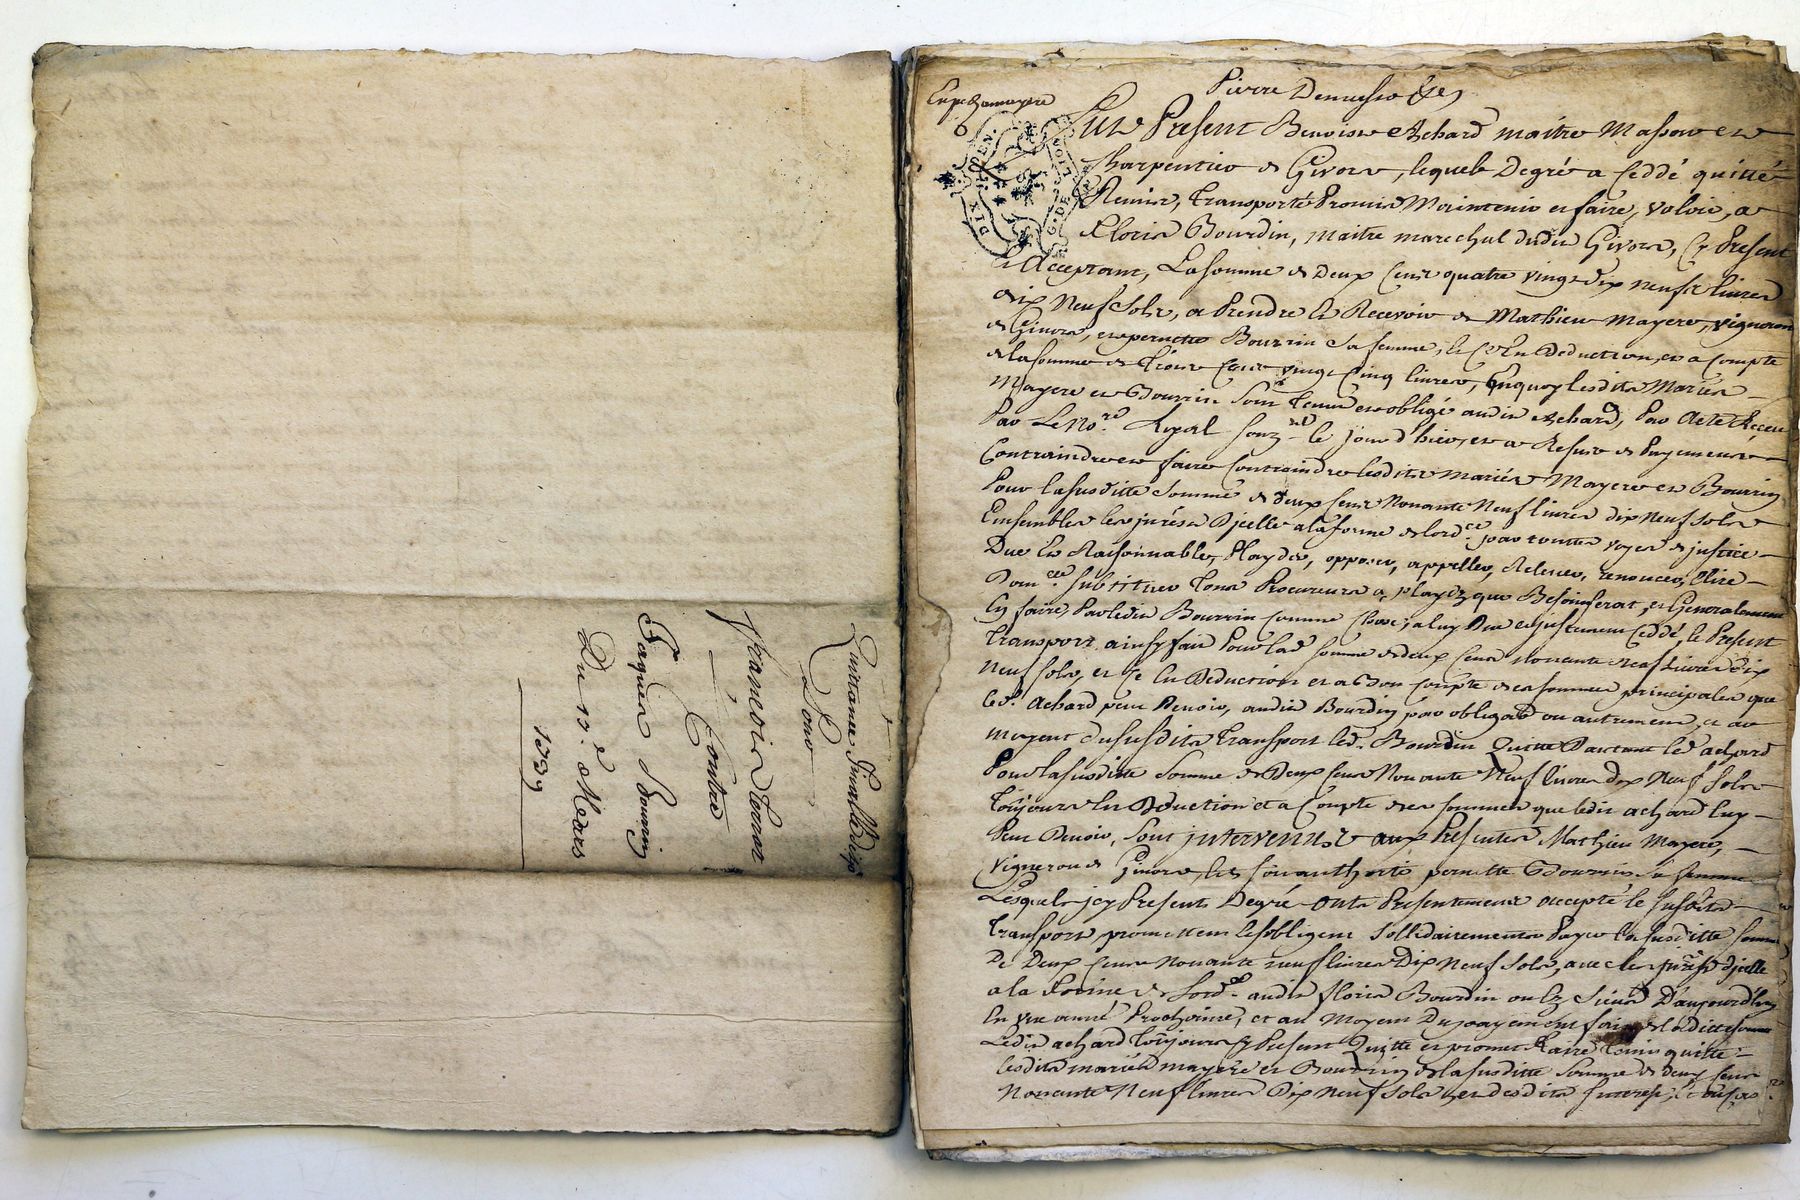 Quittance Finalle
Pour
François
Contre
Jaques Bourrin
Du 13.e Mars
1739
Pierre
DIX DEN.
G. DE LION
Fut Present Benoist Achard maitre Masson et
Charpentier de Givors, lequel de gré a ceddé quitté
Remis, transporté Promis Maintenir et faire, valoir, a
Floris Bourdin, maitre marechal dudit Givors, Cy Present
et Acceptant, La somme de Deux Cent quatre vingt dix neuf livres
dix Neuf Sols, a Prendre et Recevoir de Mathieu Mayere, vigneron
de Givors, et pernette Bourrin sa femme, et Ce En Deduction, et a Compte
de la somme de Trois Cent vingt Cinq livres, Enquoy lesdits Mariés
Mayere et Bourrin sont Tenus et obligé audit Achard, Par Acte Reçeu
Par Le No.re souz.né le jour d'hier, et a Refus de Payement
Contraindre et faire Contraindre lesdits Mariés Mayere et Bourrin
Pour la susditte Somme de deux Cent Nonante Neuf livres dix Neuf Sols
Ensembles les d'jcelle a la forme de lord.ce par toutes voyes de justice
Due et Raisonnable, Playder, opposer, appeller, Relever, renoncer, Elire
Dom.cile substituer Tous Procureurs a playdz que Besoin serat, et Generalement
En faire, Par ledit Bourrin comme Chose, a luy Due et justement Ceddé, le Present
Transport ainsy fait Pour lad. somme de deux Cent nonante neuf livres Dix
Neuf sols, et Ce En Deduction et a Bon Compte des sommes principales que
led. Achard peut Devoir, audit Bourdin par obligaõn ou autrement, et au
moyent du susdits Transport led. Bourdin Quitte Dautant led. achard
Pour la susditte Somme de Deux Cent Nonante Neuf livres dix Neuf sols
Toujours En Deduction et a Compte des sommes que ledit achard luy
Peut Devoir, Sont jntervenus aux Presentes Mathieu Mayere,
Vigneron de Givors, et de son authorité pernette Bourrin sa femme
Lesquels jcy Presents De gré onts Presentement accepté le susdits
Transport, promettent et sobligent sollidairement a Payer la susditte somme
De Deux Cent Nonante neuf livres Dix Neuf Sols, avec les d'jcelle
a la Forme de lord.ce audit floris Bourdin ou Es Siens D'aujourd'huy
En une année Prochaine, et au Moyen Du payement fait de laditte somme
Ledit achard Toujours Present Quitte et promet Faire Tenir quitte
lesdits mariés mayere et Bourrin de la susditte Somme de deux Cent
Nonante Neuf livres Dix Neuf Sols et desdits Interest,